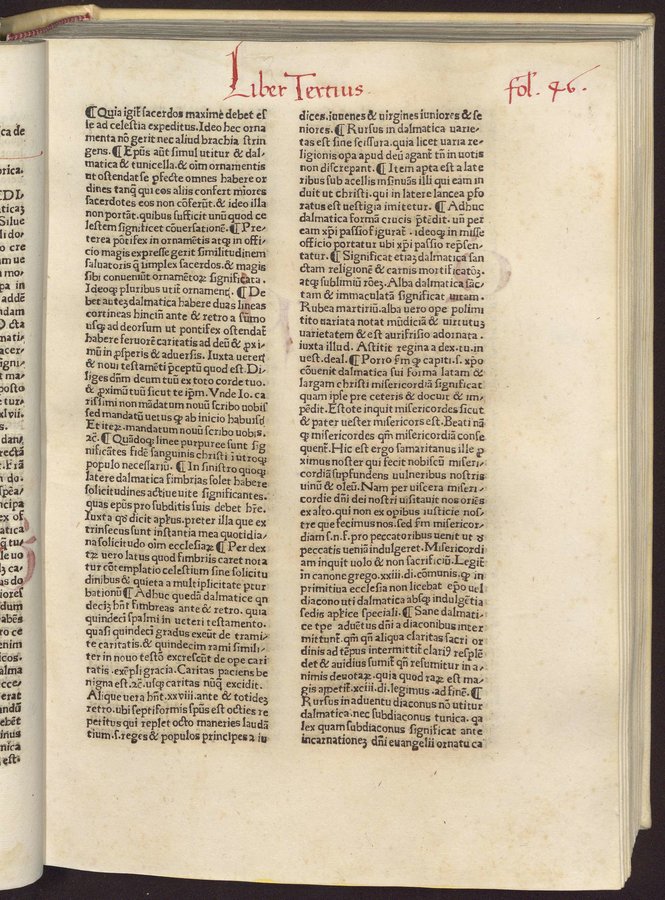 Liber Tertius.
fol. 46.
¶ Quia igit̃ sacerdos maxime debet es
se ad celestia expeditus. Ideo hec orna
menta nõ gerit nec aliud brachia strin
gens. ¶ Ep̃us aũt simul utitur & dal-
matica & tunicella. & oĩm ornamentis
ut ostendat se ꝑfecte omnes habere or
dines tanq̃ qui eos aliis confert miores
sacerdotes eos non cõferũt. & ideo illa
non portãt. quibus sufficit unũ quod ce
lestem significet cõuersationẽ. ¶ Pre-
terea põtifex in ornamẽtis atq̃ in offi-
cio magis expresse gerit similitudinem
saluatoris q̃ implex sacerdos. & magis
sibi conueniũt ornamẽtoꝝ significata.
Ideoqꝫ pluribus utit̃ ornament̃. ¶ De
bet auteꝫ dalmatica habere duas lineas
cortineas hincin̄ ante & retro a sũmo
usqꝫ ad deorsum ut pontifex ostendat
habere feruorẽ caritatis ad deũ & ꝓxi-
mũ in ꝓsperis & aduersis. Iuxta ueteri
& noui testamẽti p̃ceptũ quod est. Di-
liges dñm deum tuũ ex toto corde tuo.
& ꝓximũ tuũ sicut te ip̃m. Vnde Io. ca
rissimi non mãdatum nouũ scribo uobis
sed mandatũ uetus qꝫ ab inicio habuistis
Et iteꝝ. mandatum nouũ scribo uobis.
⁊c̃. ¶ Quãdoqꝫ linee purpuree sunt sig
nificãtes fidẽ sanguinis christi ĩ utroqꝫ
populo necessariũ. ¶ In sinistro quoqꝫ
latere dalmatica fimbrias solet habere
solicitudines actiue uite significantes.
quas ep̃us pro subditis suis debet hr̃e.
Iuxta qd̃ dicit ap̃tus. preter illa que ex
trinsecus sunt instantia mea quotidia-
na solicitudo oĩm ecclesiaꝝ ¶ Per dex
tꝝ uero latus quod fimbriis caret nota
tur cõtemplatio celestium sine solicitu
dinibus & quieta a multiplicitate ꝑtur
bationũ ¶ Adhuc quedã dalmatice qn̄
deciꝫ hñt fimbreas ante & retro. quia
quindeci psalmi in ueteri testamento.
quasi quindeci gradus exeũt de trami-
te caritatis. & quindecim rami simili-
ter in nouo testõ excrescũt de ope cari
tatis. exẽpli gracia. Caritas paciens be
nigna est. ⁊c̃. usqꝫ caritas nũq̃ excidit.
Alique uera hñt. xxviii. ante & totideꝫ
retro. ubi septiformis sp̃us est octies re
peritus qui replet octo maneries laudã
tium. s. reges & populos principes ⁊ iu
dices. iuuenes & uirgines iuniores & se
niores. ¶ Rursus in dalmatica uarie-
tas est sine scissura. quia licet uaria re-
ligionis opa apud deũ agant̃ tñ in uotis
non discrepant. ¶ Item apta est a late
ribus sub acellis m̃suãs illi qui eam in
duit ut christi. qui in latere lancea ꝑfo
ratus est uestigia imitetur. ¶ Adhuc
dalmatica formã crucis p̃tẽdit. uñ per
eam xp̃i passio figurat̃. ideoqꝫ in misse
officio portatur ubi xp̃i passio rep̃sen-
tatur. ¶ Significat etiaꝫ dalmatica san
ctam religionẽ & carnis mortificatõꝫ.
atqꝫ sublimiũ rões. Alba dalmatica sãc
tam & immaculatã significat uitam.
Rubea martiriũ. alba uero ope polimi
tito uariata notat mũdiciã & uirtutuꝫ
uarietatem & est aurifrisio adornata.
iuxta illud. Astitit regina a dex. tu. in
uest. deal. ¶ Porro ẜm qꝫ capiti. s. xp̃o
cõuenit dalmatica sui forma latam &
largam christi misericordiã significat
quam ipse pre ceteris & docuit & im-
pẽdit. Estote inquit misericordes sicut
& pater uester misericors est. Beati nã
qꝫ misericordes qm̃ misericordiã conse
quent̃. Hic est ergo samaritanus ille ꝓ
ximus noster qui fecit nobiscũ miseri-
cordiã supfundens uulneribus nostris
uinũ & oleũ. Nam per uiscera miseri-
cordie dñi dei nostri uisitauit nos oriẽs
ex alto. qui non ex opibus iusticie nos-
tre que fecimus nos. sed ẜm misericor-
diam s. n. f. pro peccatoribus uenit ut d̃
peccatis ueniã indulgeret. Misericordi
am inquit uolo & non sacrificiũ. Legit̃
in canone grego. xxiii. di. cõmunis. qꝫ in
primitiua ecclesia non licebat ep̃o uel
diacono uti dalmatica absqꝫ indulgẽtia
sedis ap̃tice speciali. ¶ Sane dalmati-
ce tpe aduẽtus dñi a diaconibus inter
mittunt̃. qm̃ qñ aliqua claritas sacri or
dinis ad tẽpus intermittit̃ clari9 resplẽ
det & auidius sumit̃ qñ resumitur in a-
nimis deuotaꝝ. quia quod raꝝ est ma-
gis apetit̃. xciii. di. legimus. ad finẽ. ¶
Rursus in aduentu diaconus nõ utitur
dalmatica. nec subdiaconus tunica. qa
lex quam subdiaconus significat ante
incarnationeꝫ dñi euangelii ornatu ca